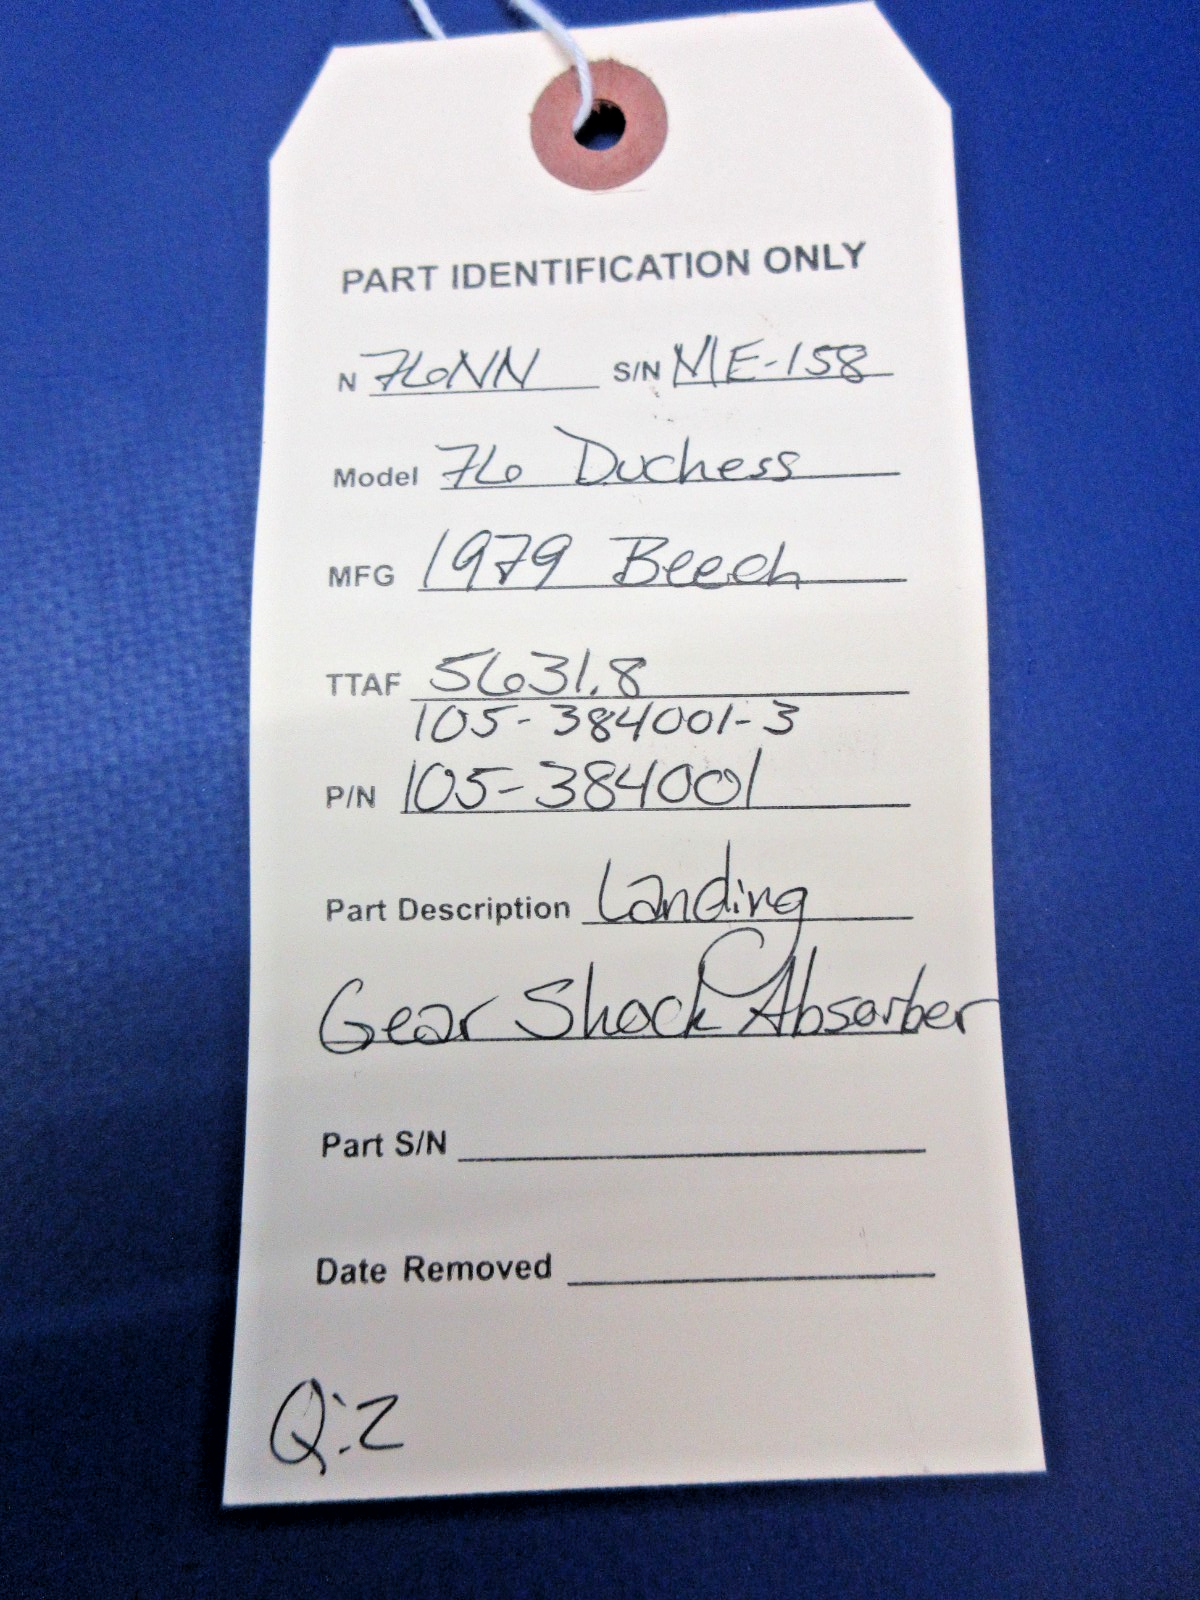 PART IDENTIFICATION ONLY
N 76NN S/N ME-158
Model 76 Duchess
MFG 1979 Beech
TTAF 5631.8
105-384001-3
P/N 105-384001
Part Description Landing
Gear Shock Absorber
Part S/N
Date Removed
Q:2